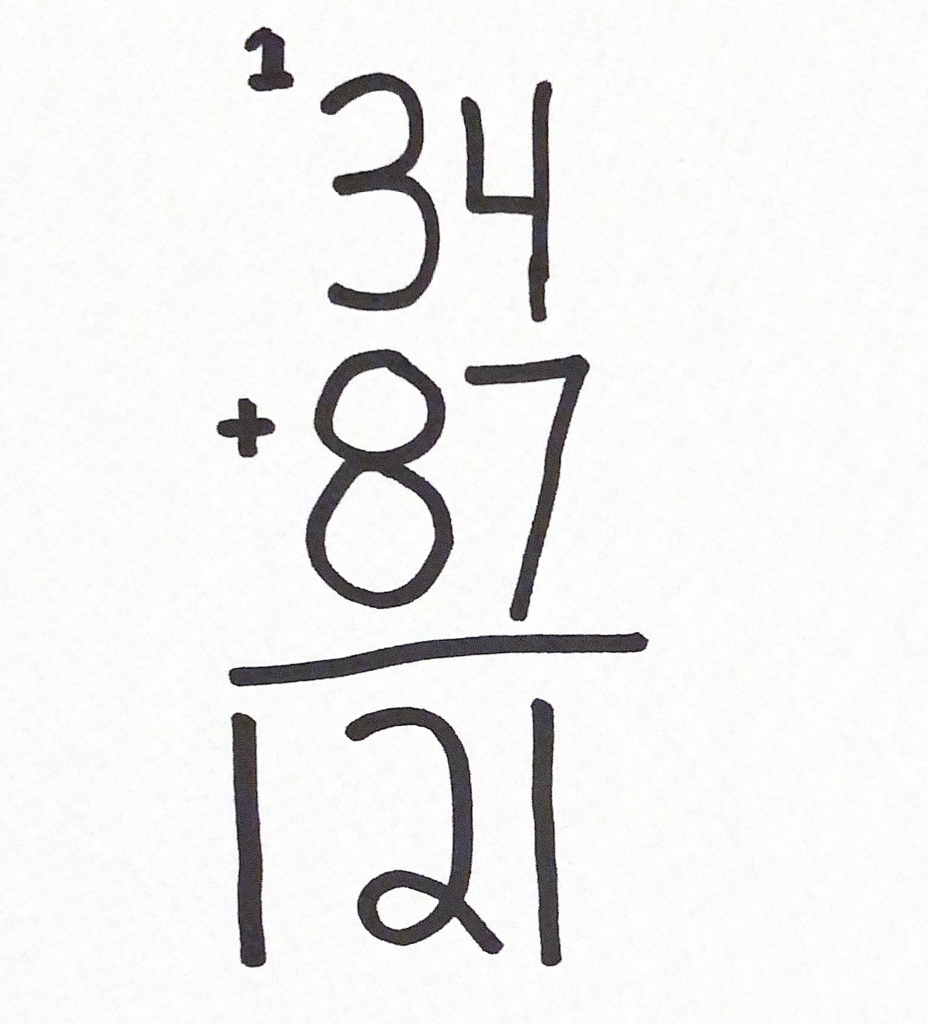 1
34
+ 87
121